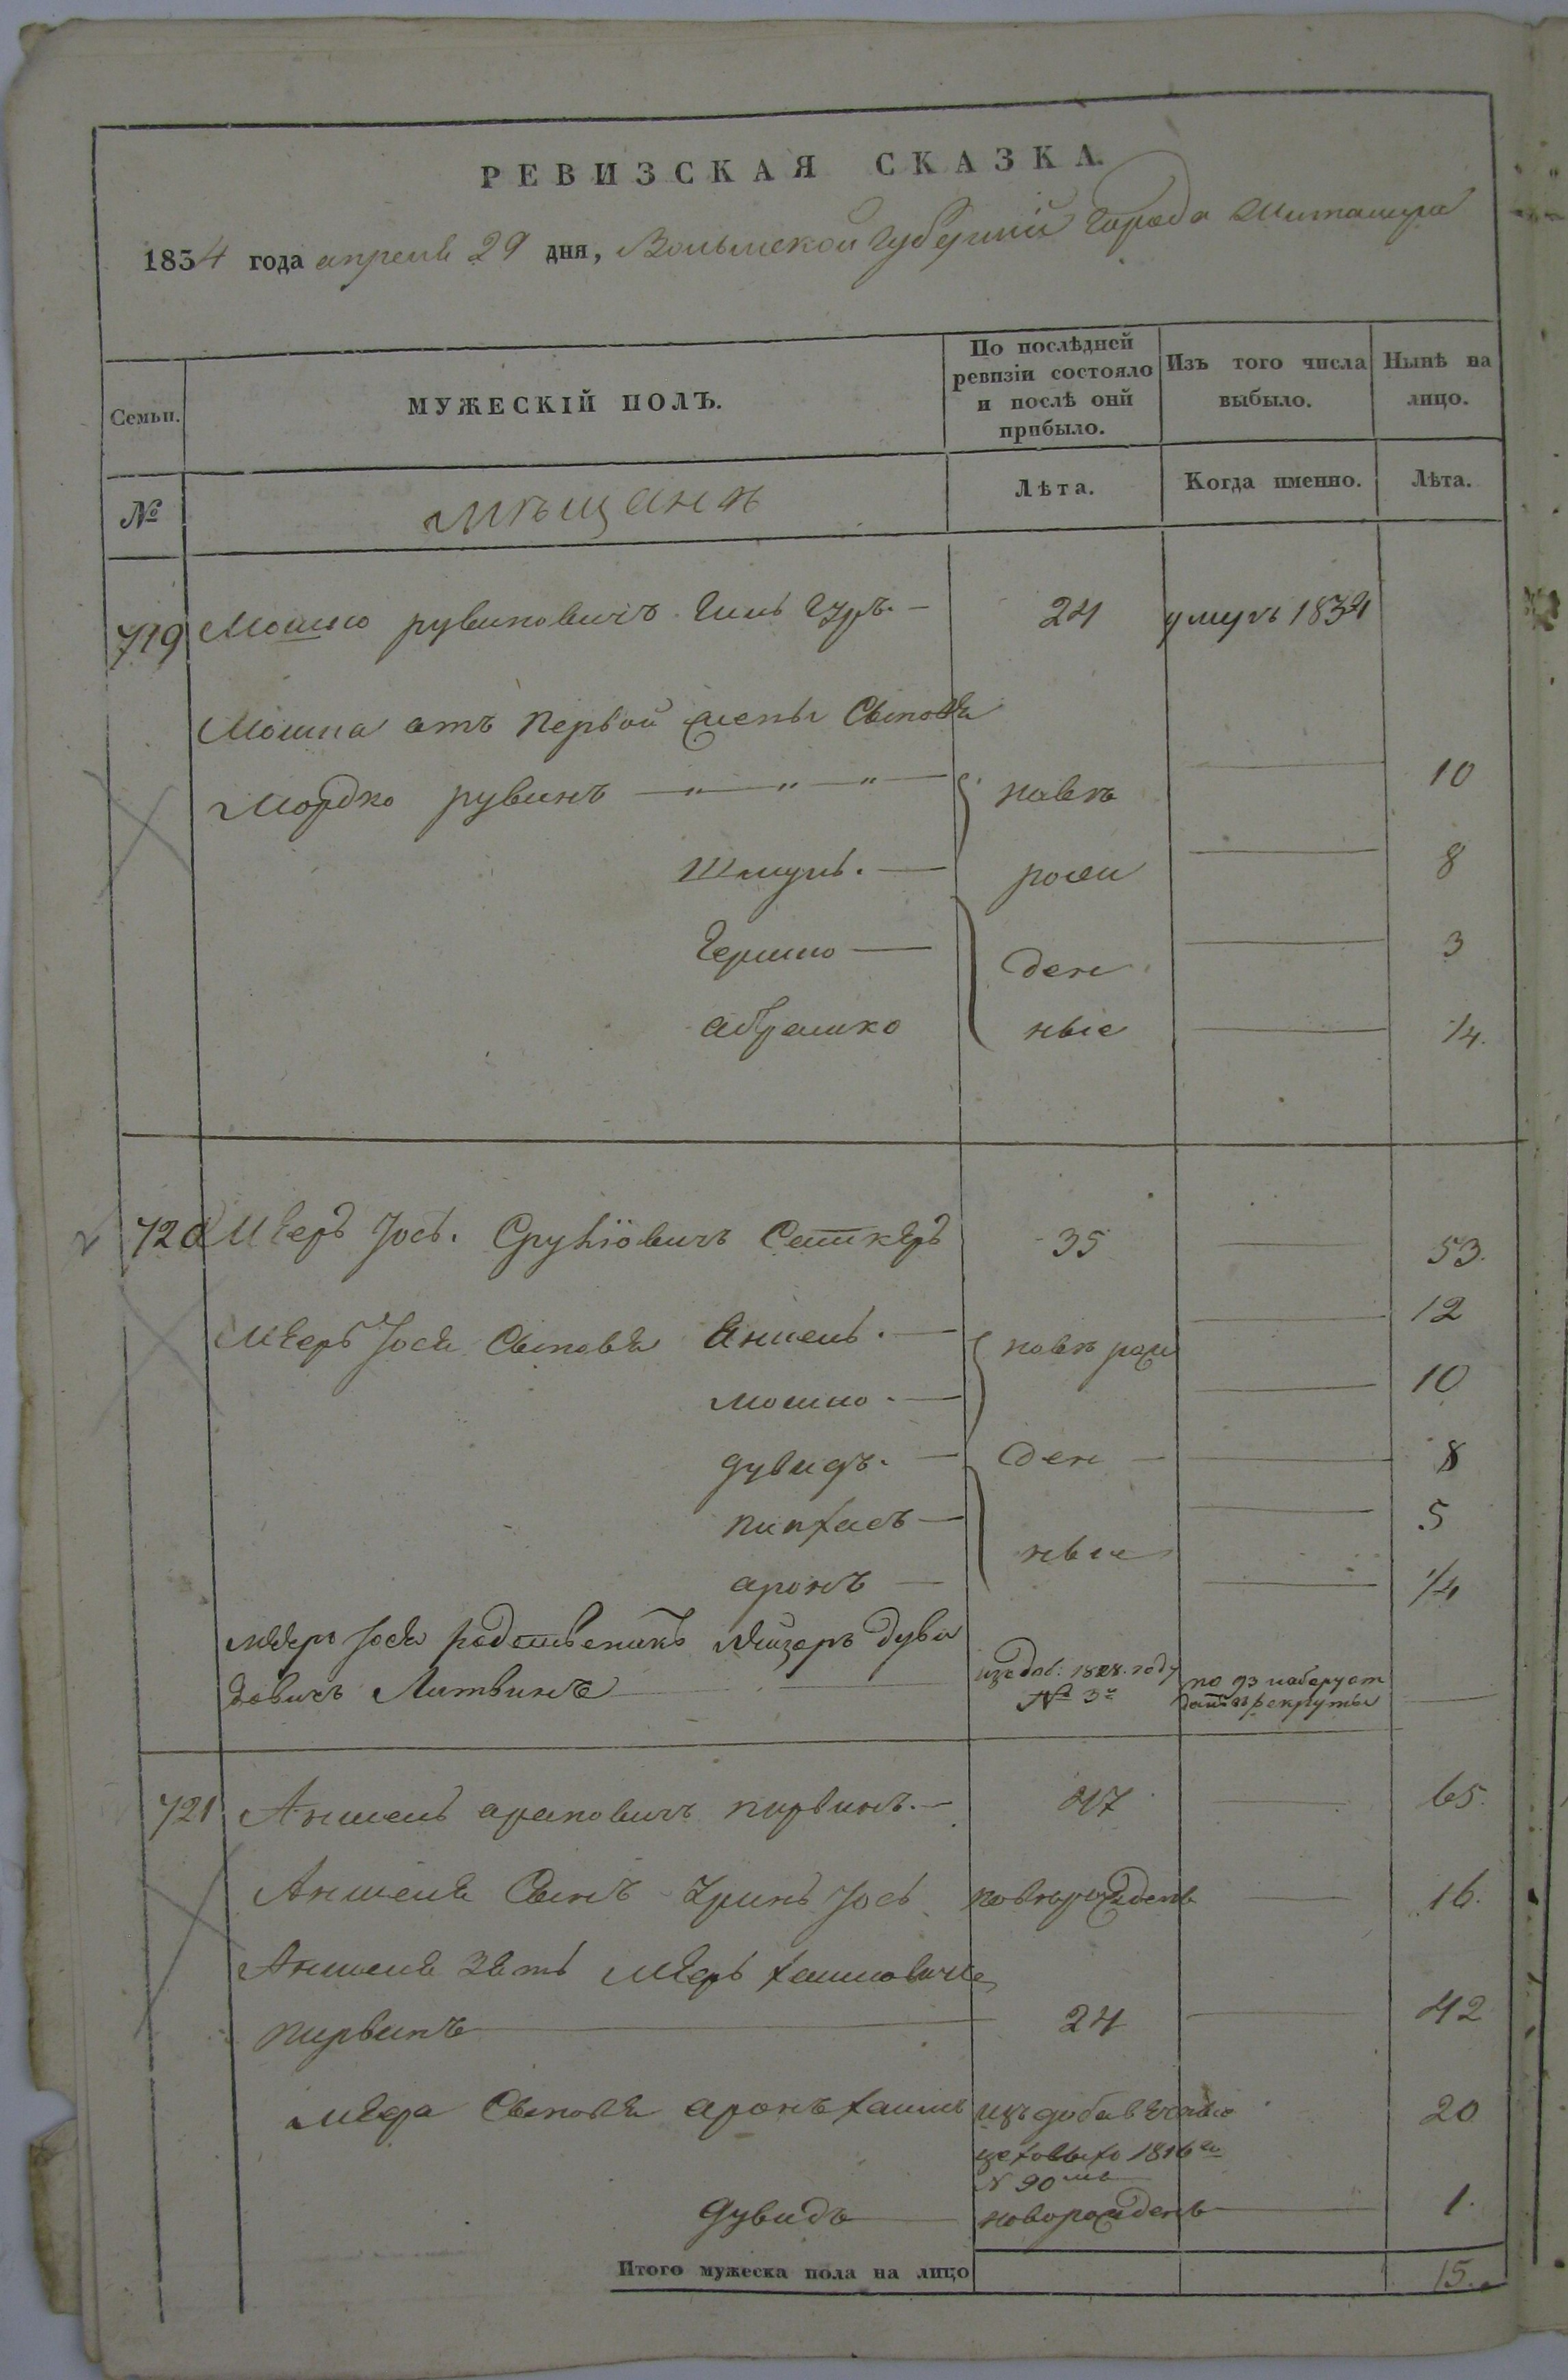 РЕВИЗСКАЯ СКАЗКА.
1834 года апреля 29 дня, Волынской губернии города Житомира
Семьи.
МУЖЕСКІЙ ПОЛЪ.
По послѣдней ревизіи состояло и послѣ оній прибыло.
Изъ того числа выбыло.
Нынѣ на лицо.
№
мѣщанъ
Лѣта.
Когда именно.
Лѣта.
719 Мошко рувиновичъ 24 умеръ 1834
Мошка отъ первой жены Сыновя
Мордко рувинъ новъ 10
Шмуль. рожи 8
Гершко ден 3
абрамко ные 1/4.
720 Меер Іось. Сруліовичъ 35 53.
Меер Іося Сыновя Аншель. новъ рож 12
мошко. 10
дувидъ. ден 8
пинхасъ 5
аронъ ные 1/4
меер Іося родственикъ Лейзоръ дуви
довичъ Литвинъ изъ доб: 1828. году № 3 рекруты
721 Аншель ароновичъ пирвинъ. 47 65.
Аншеля Сынъ Іось новорожденъ 16.
Аншеля зять Меер хаимовичъ
пирвинъ 24 42
меера Сыновя аронъ хаимъ изъ добавочной 20
1816 N 90
дувидъ новорожденъ 1.
Итого мужеска пола на лицо 15.